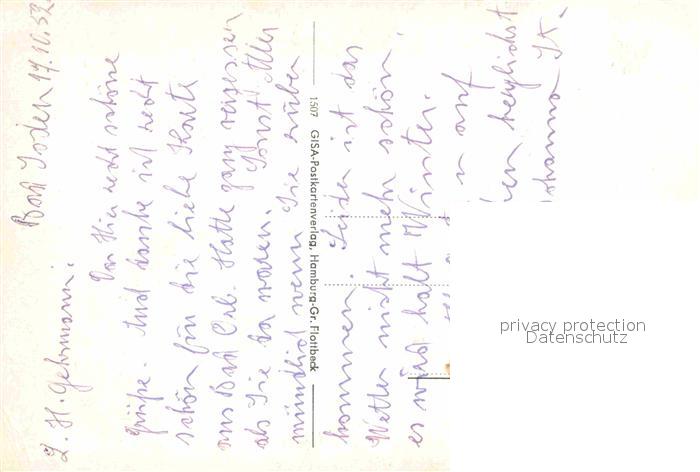 Bad Soden 17.10.52
L. H. Gehrmann.
Von Hier recht schöne
Grüße. Und danke ich recht
schön für die liebe Karte
aus Bad Orb. Hatte ganz vergessen
als Sie da waren. Sonst Alles
mündlich wenn Sie rüber
kommen. Leider ist das
Wetter nicht mehr schön.
es wird halt Winter.
auf
herzlichst
Johanna St.
1507 GISA-Postkartenverlag, Hamburg-Gr. Flottbeck
privacy protection
Datenschutz